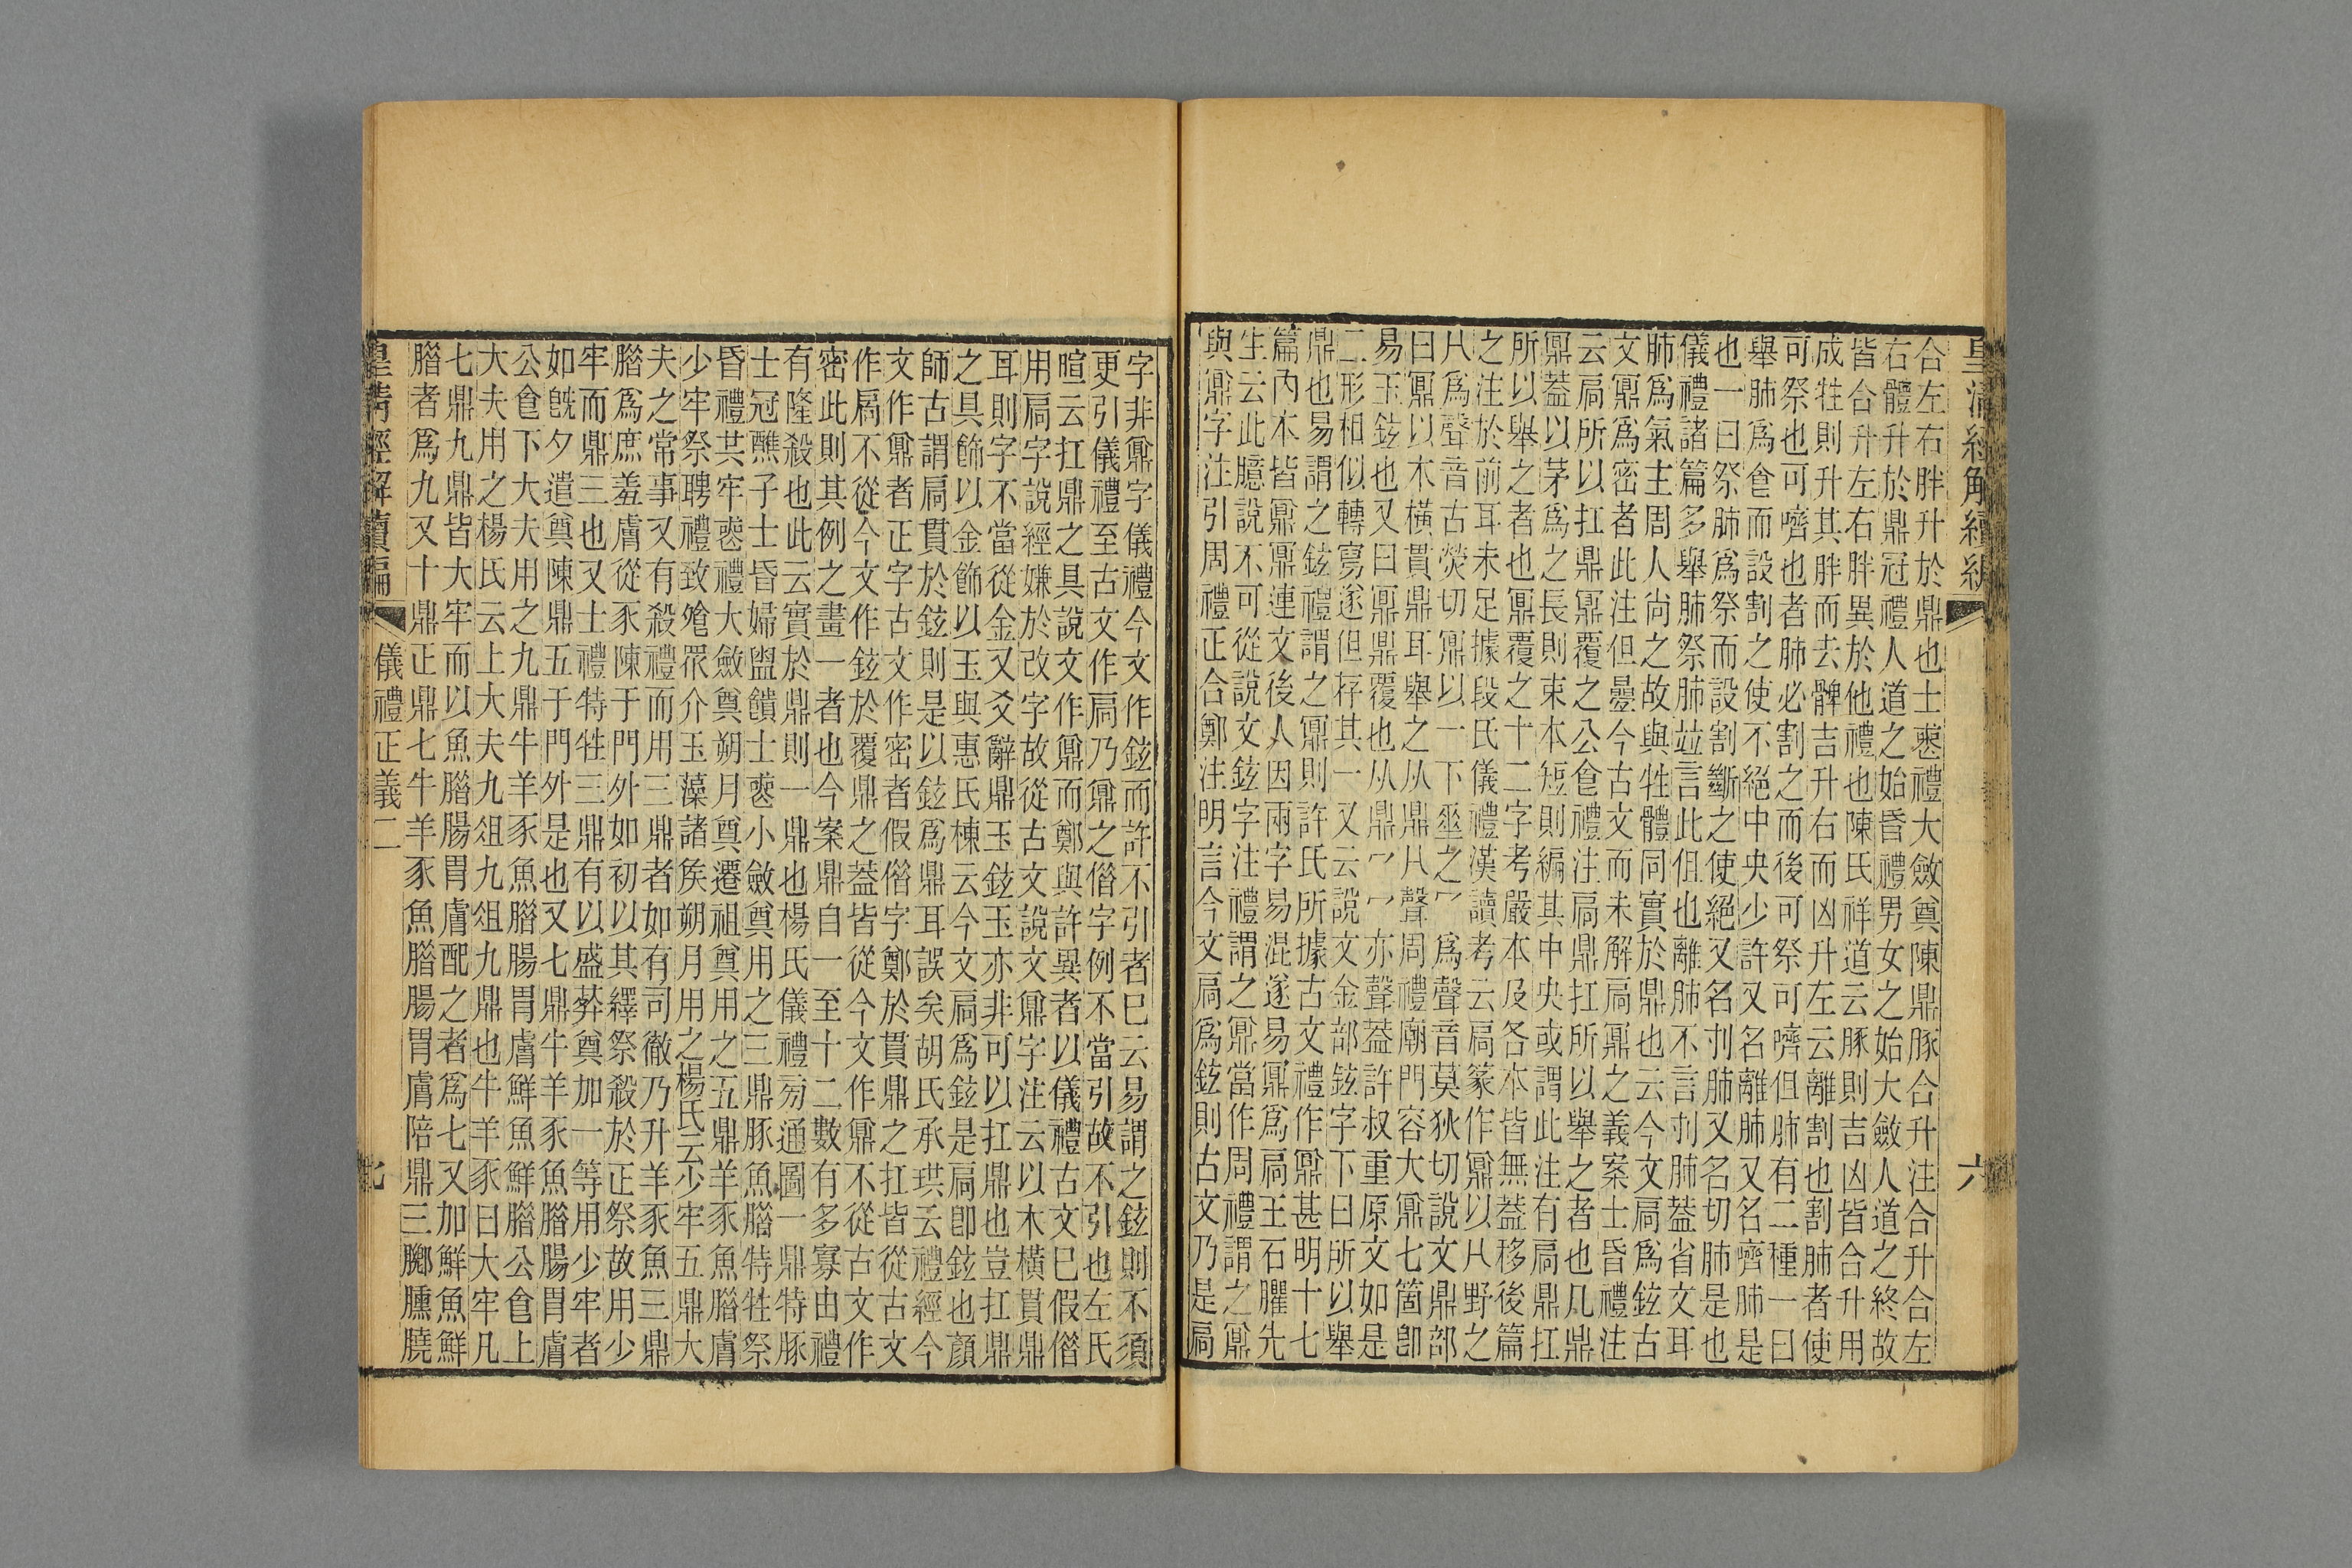 皇清經解續編
六
合左右胖升於鼎也士喪禮大斂奠陳鼎豚合升注合升合左
右體升於鼎冠禮人道之始昏禮男女之始大斂人道之終故
皆合升左右胖異於他禮也陳氏祥道云豚則吉凶皆合升用
成牲則升其胖而去髀吉升右而凶升左云離割也割肺者使
可祭也可嚌也者肺必割之而後可祭可嚌但肺有二種一曰
舉肺爲食而設割之使不絕中央少許又名離肺又名嚌肺是
也一曰祭肺爲祭而設割斷之使絕又名刌肺又名切肺是也
儀禮諸篇多舉肺祭肺並言此但也離肺不言刌肺蓋省文耳
肺爲氣主周人尚之故與牲體同實於鼎也云今文扃爲鉉古
文鼏爲密者此注但疊今古文而未解扃鼏之義案士昏禮注
云扃所以扛鼎鼏覆之公食禮注扃鼎扛所以舉之者也凡鼎
鼏蓋以茅爲之長則束本短則編其中央或謂此注有扃鼎扛
所以舉之者也鼏覆之十二字考嚴本及各本皆無蓋移後篇
之注於前耳未足據段氏儀禮漢讀考云扃篆作鼏以八野之
八爲聲音古熒切鼏以一下垂之冖爲聲音莫狄切說文鼎部
曰鼏以木橫貫鼎耳舉之从鼎八聲周禮廟門容大鼏七箇卽
易玉鉉也又曰鼏鼎覆也从鼎冖冖亦聲蓋許叔重原文如是
二形相似轉寫遂但存其一又云說文金部鉉字下曰所以舉
鼎也易謂之鉉禮謂之鼏則許氏所據古文禮作鼏甚明十七
篇內本皆鼏鼏連文後人因兩字易混遂易鼏爲扃王石臞先
生云此臆說不可從說文鉉字注禮謂之鼏當作周禮謂之鼏
與鼏字注引周禮正合鄭注明言今文扃爲鉉則古文乃是扃
字非鼏字儀禮今文作鉉而許不引者已云易謂之鉉則不須
更引儀禮至古文作扃乃鼏之借字例不當引故不引也左氏
暄云扛鼎之具說文作鼏而鄭與許異者以儀禮古文已假借
用扃字說經嫌於改字故從古文說文鼏字注云以木橫貫鼎
耳則字不當從金又爻辭鼎玉鉉玉亦非可以扛鼎也豈扛鼎
之具飾以金飾以玉與惠氏棟云今文扃爲鉉是扃卽鉉也顏
師古謂扃貫於鉉則是以鉉爲鼎耳誤矣胡氏承珙云禮經今
文作鼏者正字古文作密者假借字鄭於貫鼎之扛皆從古文
作扃不從今文作鉉於覆鼎之蓋皆從今文作鼏不從古文作
密此則其例之畫一者也今案鼎自一至十二數有多寡由禮
有隆殺也此云實於鼎則一鼎也楊氏儀禮旁通圖一鼎特豚
士冠醮子士昏婦盥饋士喪小斂奠用之三鼎豚魚腊特牲祭
昏禮共牢喪禮大斂奠朔月奠遷祖奠用之五鼎羊豕魚腊膚
少牢祭聘禮致飱眾介玉藻諸矦朔月用之楊氏云少牢五鼎大
夫之常事又有殺禮而用三鼎者如有司徹乃升羊豕魚三鼎
腊爲庶羞膚從豕陳于門外如初以其繹祭殺於正祭故用少
牢而鼎三也又士禮特牲三鼎有以盛葬奠加一等用少牢者
如旣夕遣奠陳鼎五于門外是也又七鼎牛羊豕魚腊腸胃膚
公食下大夫用之九鼎牛羊豕魚腊腸胃膚鮮魚鮮腊公食上
大夫用之楊氏云上大夫九俎九俎九鼎也牛羊豕曰大牢凡
七鼎九鼎皆大牢而以魚腊腸胃膚配之者爲七又加鮮魚鮮
腊者爲九又十鼎正鼎七牛羊豕魚腊腸胃膚陪鼎三膷臐膮
皇清經解續編
儀禮正義二
七